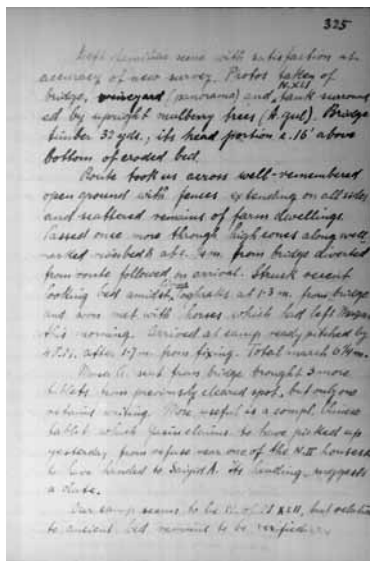 325
with satisfaction at
accuracy of new survey. Photos taken of
N.XLI
bridge, vineyard (panorama) and tank surround
ed by upright mulberry trees (A. gul). Bridge
timber 32 yds, its head portion c. 16' above
bottom of eroded bed.
Route took us across well-remembered
open ground with fences extending on all sides
and scattered remains of farm dwellings.
Passed once more through high cones along well
marked riverbed & abt. from bridge diverted
from route followed on arrival. Struck recent
looking bed amidst toghraks at 1.3 m. from bridge
and were met with horses which had left
this morning. Arrived at camp ready pitched by
after 1.7 m. from fixing. Total march
sent from bridge brought 3 more
tablets from previously cleared spot, but only one
retains writing. More useful is a compl. Chinese
tablet which claims to have picked up
yesterday from refuse near one of the N.II houses &
to have handed to Saiyid A. Its heading suggests
a date.
Our camp seems to be of but relation
to ancient bed remains to be verified